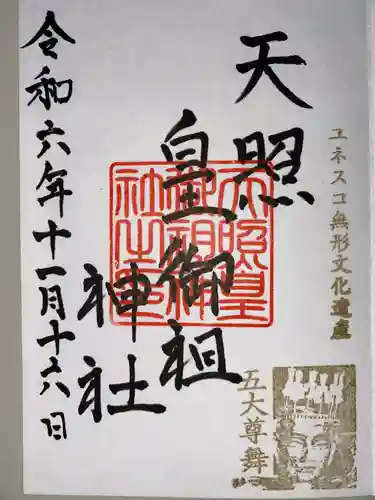 ユネスコ無形文化遺産
五大尊舞
天照
皇御祖
神社
令和六年十一月十六日
天照皇
御祖神
社之印